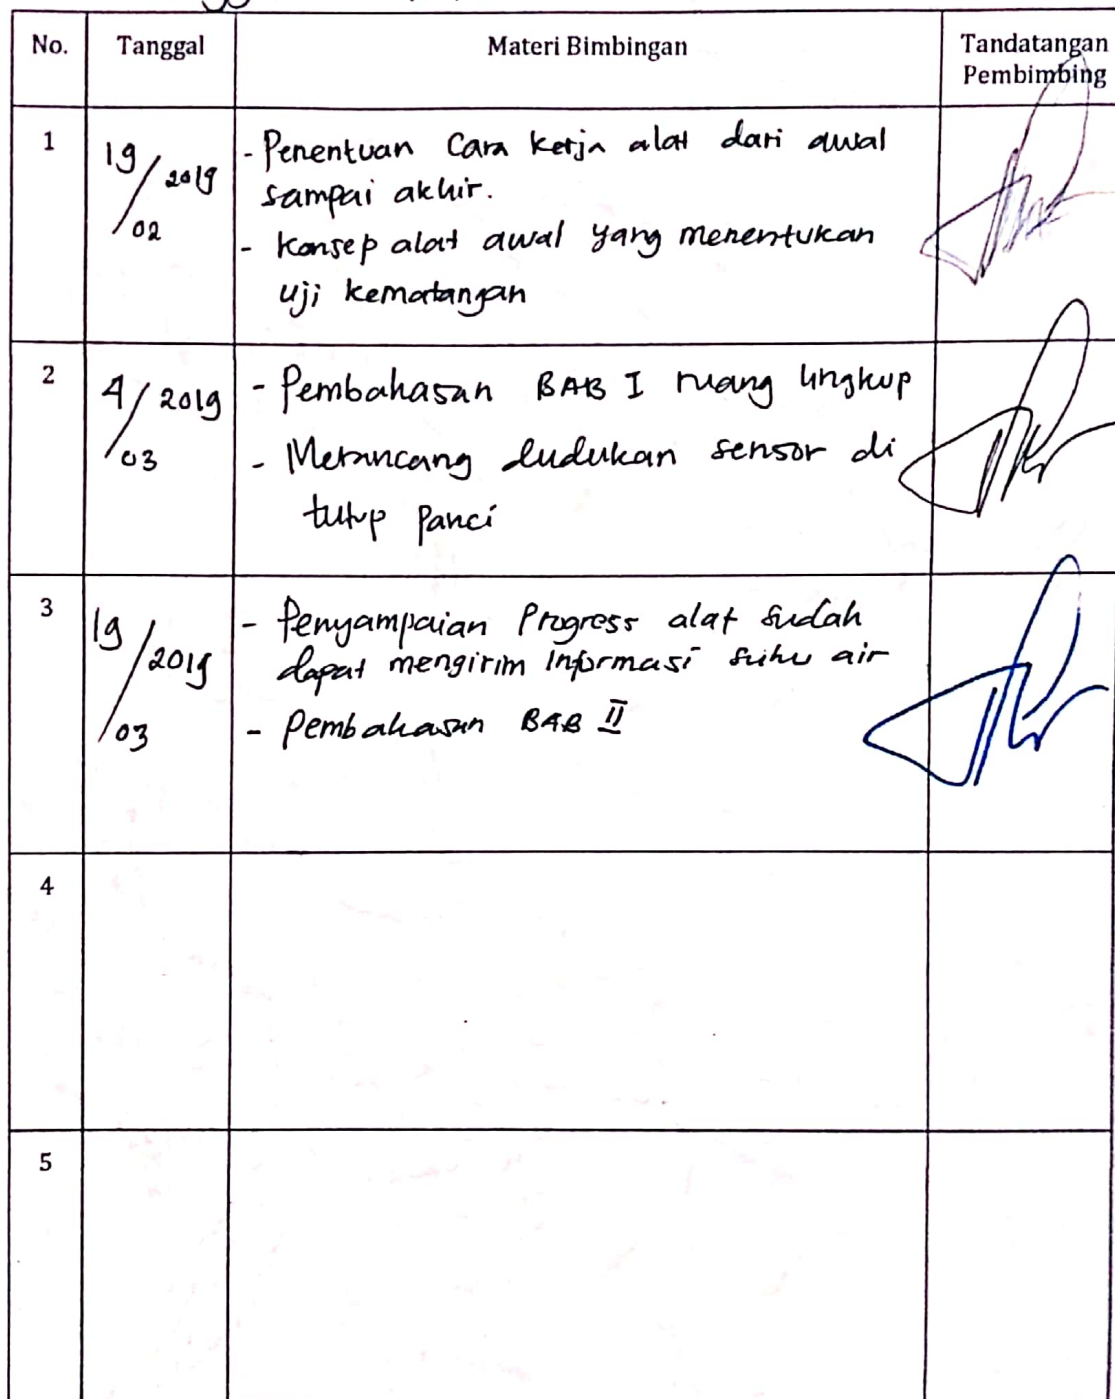 No. Tanggal Materi Bimbingan Tandatangan
Pembimbing
1
19/02 2019
- Penentuan Cara kerja alat dari awal
sampai akhir.
- Konsep alat awal yang menentukan
uji kematangan
2
4/03 2019
- Pembahasan BAB I ruang lingkup
- Merancang dudukan sensor di
tutup panci
3
19/03 2019
- Penyampaian Progress alat sudah
dapat mengirim informasi suhu air
- Pembahasan BAB II
4
5